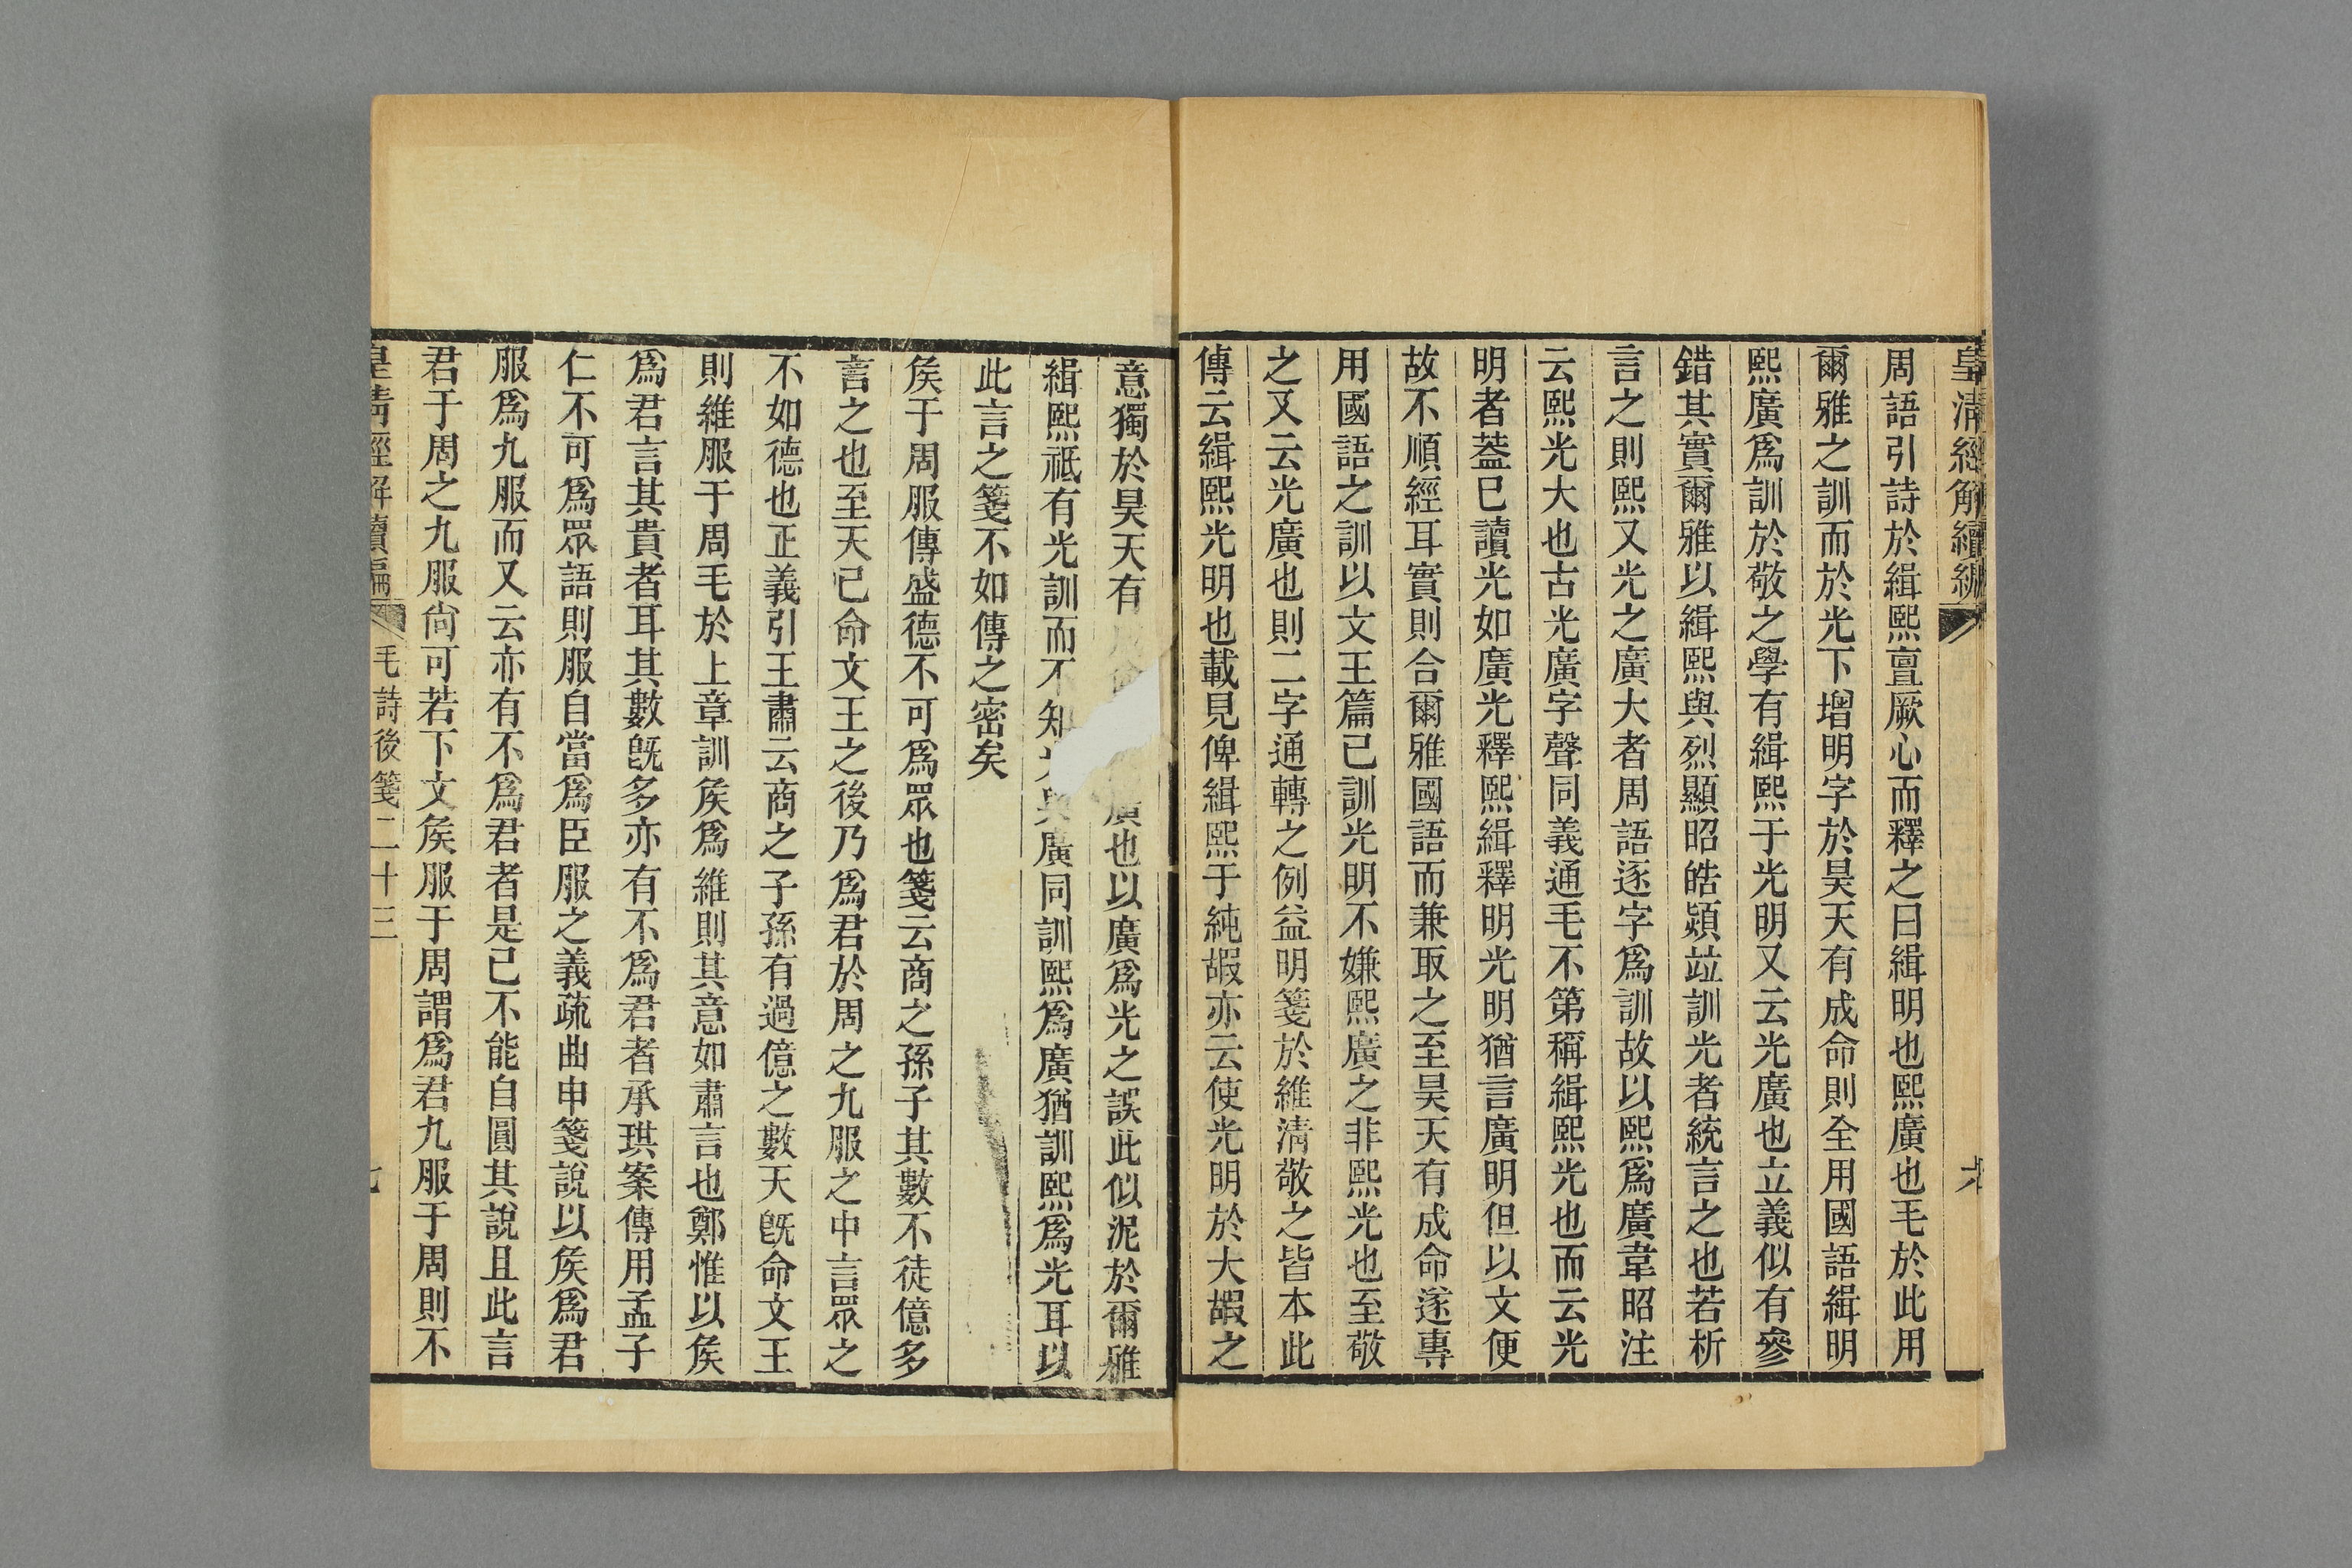 皇清經解續編
周語引詩於緝熙亶厥心而釋之曰緝明也熙廣也毛於此用
爾雅之訓而於光下增明字於昊天有成命則全用國語緝明
熙廣爲訓於敬之學有緝熙于光明又云光廣也立義似有參
錯其實爾雅以緝熙與烈顯昭皓熲竝訓光者統言之也若析
言之則熙又光之廣大者周語逐字爲訓故以熙爲廣韋昭注
云熙光大也古光廣字聲同義通毛不第稱緝熙光也而云光
明者葢已讀光如廣光釋熙緝釋明光明猶言廣明但以文便
故不順經耳實則合爾雅國語而兼取之至昊天有成命遂專
用國語之訓以文王篇已訓光明不嫌熙廣之非熙光也至敬
之又云光廣也則二字通轉之例益明箋於維清敬之皆本此
傳云緝熙光明也載見俾緝熙于純嘏亦云使光明於大嘏之
意獨於昊天有廣也以廣爲光之誤此似泥於爾雅
緝熙祗有光訓而不知與廣同訓熙爲廣猶訓熙爲光耳以
此言之箋不如傳之密矣
矦于周服傳盛德不可爲眾也箋云商之孫子其數不徒億多
言之也至天已命文王之後乃爲君於周之九服之中言眾之
不如德也正義引王肅云商之子孫有過億之數天旣命文王
則維服于周毛於上章訓矦爲維則其意如肅言也鄭惟以矦
爲君言其貴者耳其數旣多亦有不爲君者承珙案傳用孟子
仁不可爲眾語則服自當爲臣服之義疏曲申箋說以矦爲君
服爲九服而又云亦有不爲君者是已不能自圓其說且此言
君于周之九服尙可若下文矦服于周謂爲君九服于周則不
皇清經解續編
毛詩後箋二十三
七